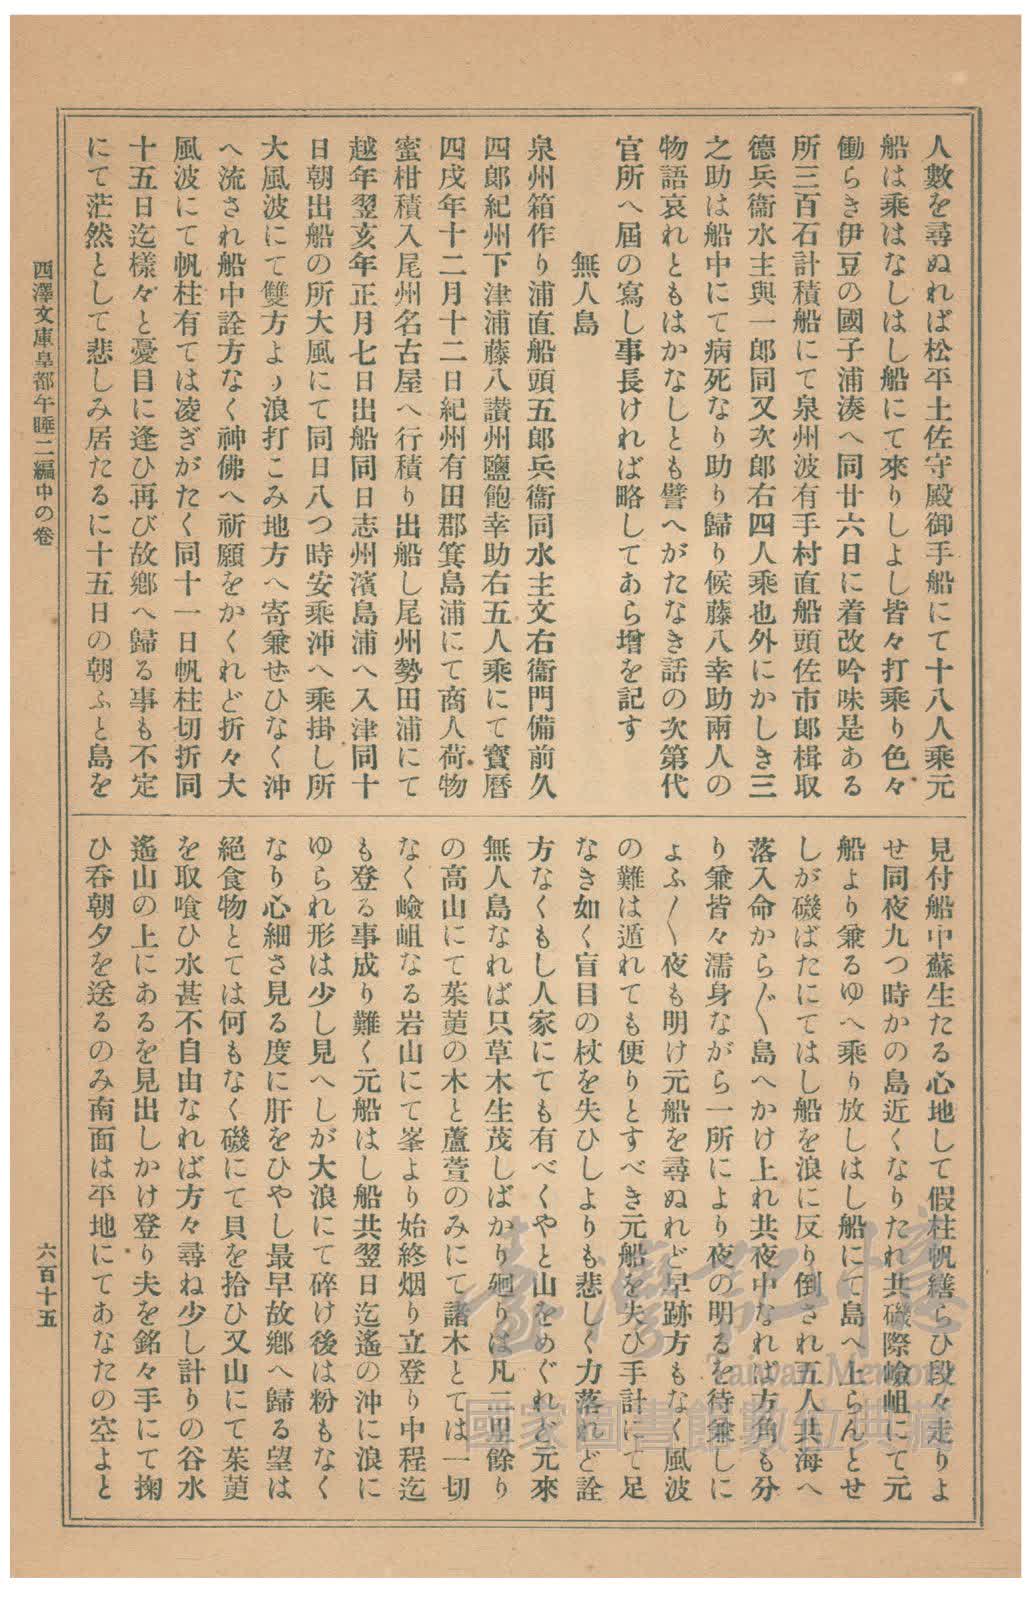 人數を尋ぬれば松平土佐守殿御手船にて十八人乘元
船は乘はなしはし船にて來りしよし皆々打乘り色々
働らき伊豆の國子浦湊へ同廿六日に着改吟味是ある
所三百石計積船にて泉州波有手村直船頭佐市郎楫取
德兵衞水主與一郎同又次郎右四人乘也外にかしき三
之助は船中にて病死なり助り歸り候藤八幸助兩人の
物語哀れともはかなしとも譬へがたなき話の次第代
官所へ屆の寫し事長ければ略してあら增を記す
無人島
泉州箱作り浦直船頭五郎兵衞同水主文右衞門備前久
四郎紀州下津浦藤八讃州鹽飽幸助右五人乘にて寳曆
四戌年十二月十二日紀州有田郡箕島浦にて商人荷物
蜜柑積入尾州名古屋へ行積り出船し尾州勢田浦にて
越年翌亥年正月七日出船同日志州濱島浦へ入津同十
日朝出船の所大風にて同日八つ時安乘沖へ乘掛し所
大風波にて雙方より浪打こみ地方へ寄兼ぜひなく沖
へ流され船中詮方なく神佛へ祈願をかくれど折々大
風波にて帆柱有ては凌ぎがたく同十一日帆柱切折同
十五日迄樣々と憂目に逢ひ再び故鄕へ歸る事も不定
にて茫然として悲しみ居たるに十五日の朝ふと島を
見付船中蘇生たる心地して假柱帆繕らひ段々走りよ
せ同夜九つ時かの島近くなりたれ共磯際嶮岨にて元
船より兼るゆへ乘り放しはし船にて島へ上らんとせ
しが磯ばたにてはし船を浪に反り倒され五人共海へ
落入命から〴〵島へかけ上れ共夜中なれば方角も分
り兼皆々濡身ながら一所により夜の明るを待兼しに
よふ〱夜も明け元船を尋ぬれど早跡方もなく風波
の難は遁れても便りとすべき元船を失ひ手計にて足
なき如く盲目の杖を失ひしよりも悲しく力落れど詮
方なくもし人家にても有べくやと山をめぐれど元來
無人島なれば只草木生茂しばかり廻りは凡二里餘り
の高山にて茱萸の木と蘆萱のみにて諸木とては一切
なく嶮岨なる岩山にて峯より始終烟り立登り中程迄
も登る事成り難く元船はし船共翌日迄遙の沖に浪に
ゆられ形は少し見へしが大浪にて碎け後は粉もなく
なり心細さ見る度に肝をひやし最早故鄕へ歸る望は
絕食物とては何もなく磯にて貝を拾ひ又山にて茱萸
を取喰ひ水甚不自由なれば方々尋ね少し計りの谷水
遙山の上にあるを見出しかけ登り夫を銘々手にて掬
ひ呑朝夕を送るのみ南面は平地にてあなたの空よと
西澤文庫皇都午睡二編中の卷
六百十五
臺灣記憶
Taiwan Memory
國家圖書館數位典藏